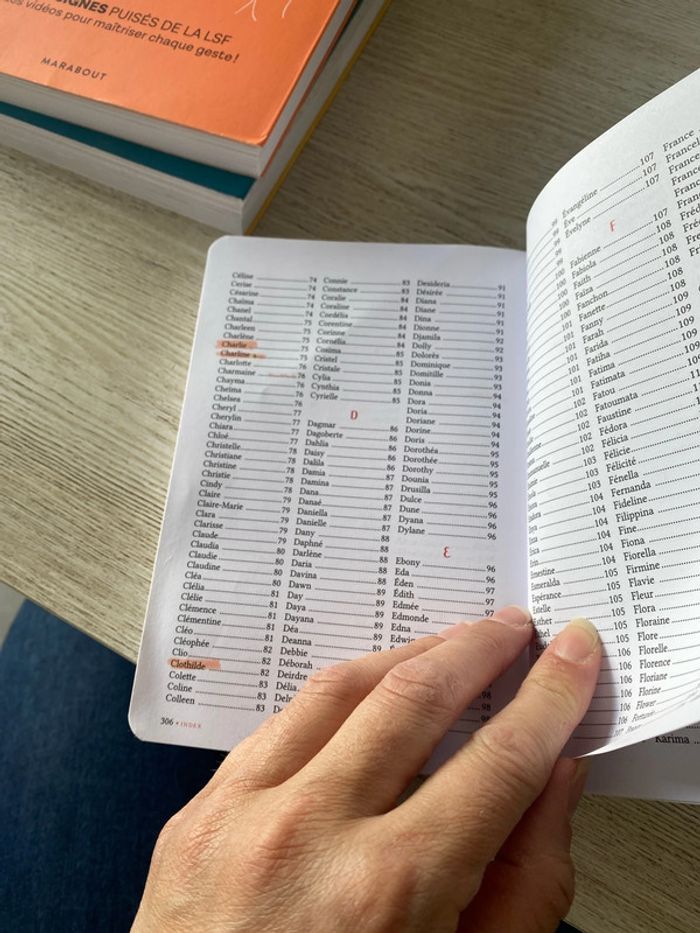 SIGNES PUISÉS DE LA LSF
des vidéos pour maîtriser chaque geste !
MARABOUT
Céline 74
Cerise 74
Césarine 74
Chaïma 74
Chanel 74
Chantal 75
Charleen 75
Charlène 75
Charlie 75
Charline 75
Charlotte 76
Charmaine 76
Chayma 76
Cheima 76
Chelsea 76
Cheryl 77
Cherylin 77
Chiara 77
Chloé 77
Christelle
Christiane 78
Christine 78
Christie 78
Cindy 78
Claire
Claire-Marie 79
Clara 79
Clarisse 79
Claude
Claudia
Claudie 80
Claudine 80
Cléa 80
Clélia
Clélie 81
Clémence 81
Clémentine 81
Cléo
Cléophée 82
Clio 82
Clothilde 82
Colette 83
Coline 83
Colleen 83
306 • INDEX
Connie 83
Constance 83
Coralie 84
Coraline 84
Cordélia 84
Corentine 84
Corinne 84
Cornélia 84
Cosima
Cristel 85
Cristale 85
Cylia 85
Cynthia 85
Cyrielle 85
D
Dagmar 86
Dagoberte 86
Dahlia 86
Daisy 86
Dalila 86
Damia 87
Damina 87
Dana 87
Danaé 87
Daniella 87
Danielle 87
Dany 88
Daphné 88
Darlène 88
Daria 88
Davina 88
Dawn 88
Day 89
Daya 89
Dayana 89
Déa 89
Deanna 89
Debbie
Déborah
Deirdre
Délia
Desideria 91
Désirée 91
Diana 91
Diane 91
Dina 91
Dionne 91
Djamila 92
Dolly 92
Dolorès 93
Dominique 93
Domitille 93
Donia 93
Donna 93
Dora 94
Doria 94
Doriane 94
Dorine 94
Doris 94
Dorothéa 95
Dorothée 95
Dorothy 95
Dounia 95
Drusilla 95
Dulce 95
Dune 96
Dyana 96
Dylane 96
E
Ebony 96
Eda 96
Éden 96
Édith 97
Edmée 97
Edmonde 97
Edna
98
98
Ernestine
Esmeralda
Espérance
Estelle
Esther
Évangéline 107
Ève 107
Évelyne 107
F
Fabienne 107
Fabiola 108
Faith 108
Faïza 108
Fanchon 108
Fanette 108
Fanny 109
Farah 109
Farida 109
Fatiha 109
Fatima
Fatimata
Fatou
Fatoumata
Faustine
Fédora
Félicia
Félicie
Félicité
Fénella
Fernanda
Fideline
Filippina
Fine
Fiona
Fiorella
Firmine
Flavie
Fleur
Flora
Floraine
Flore
Florelle
Florence
Floriane
Florine
Flower
France
Karima